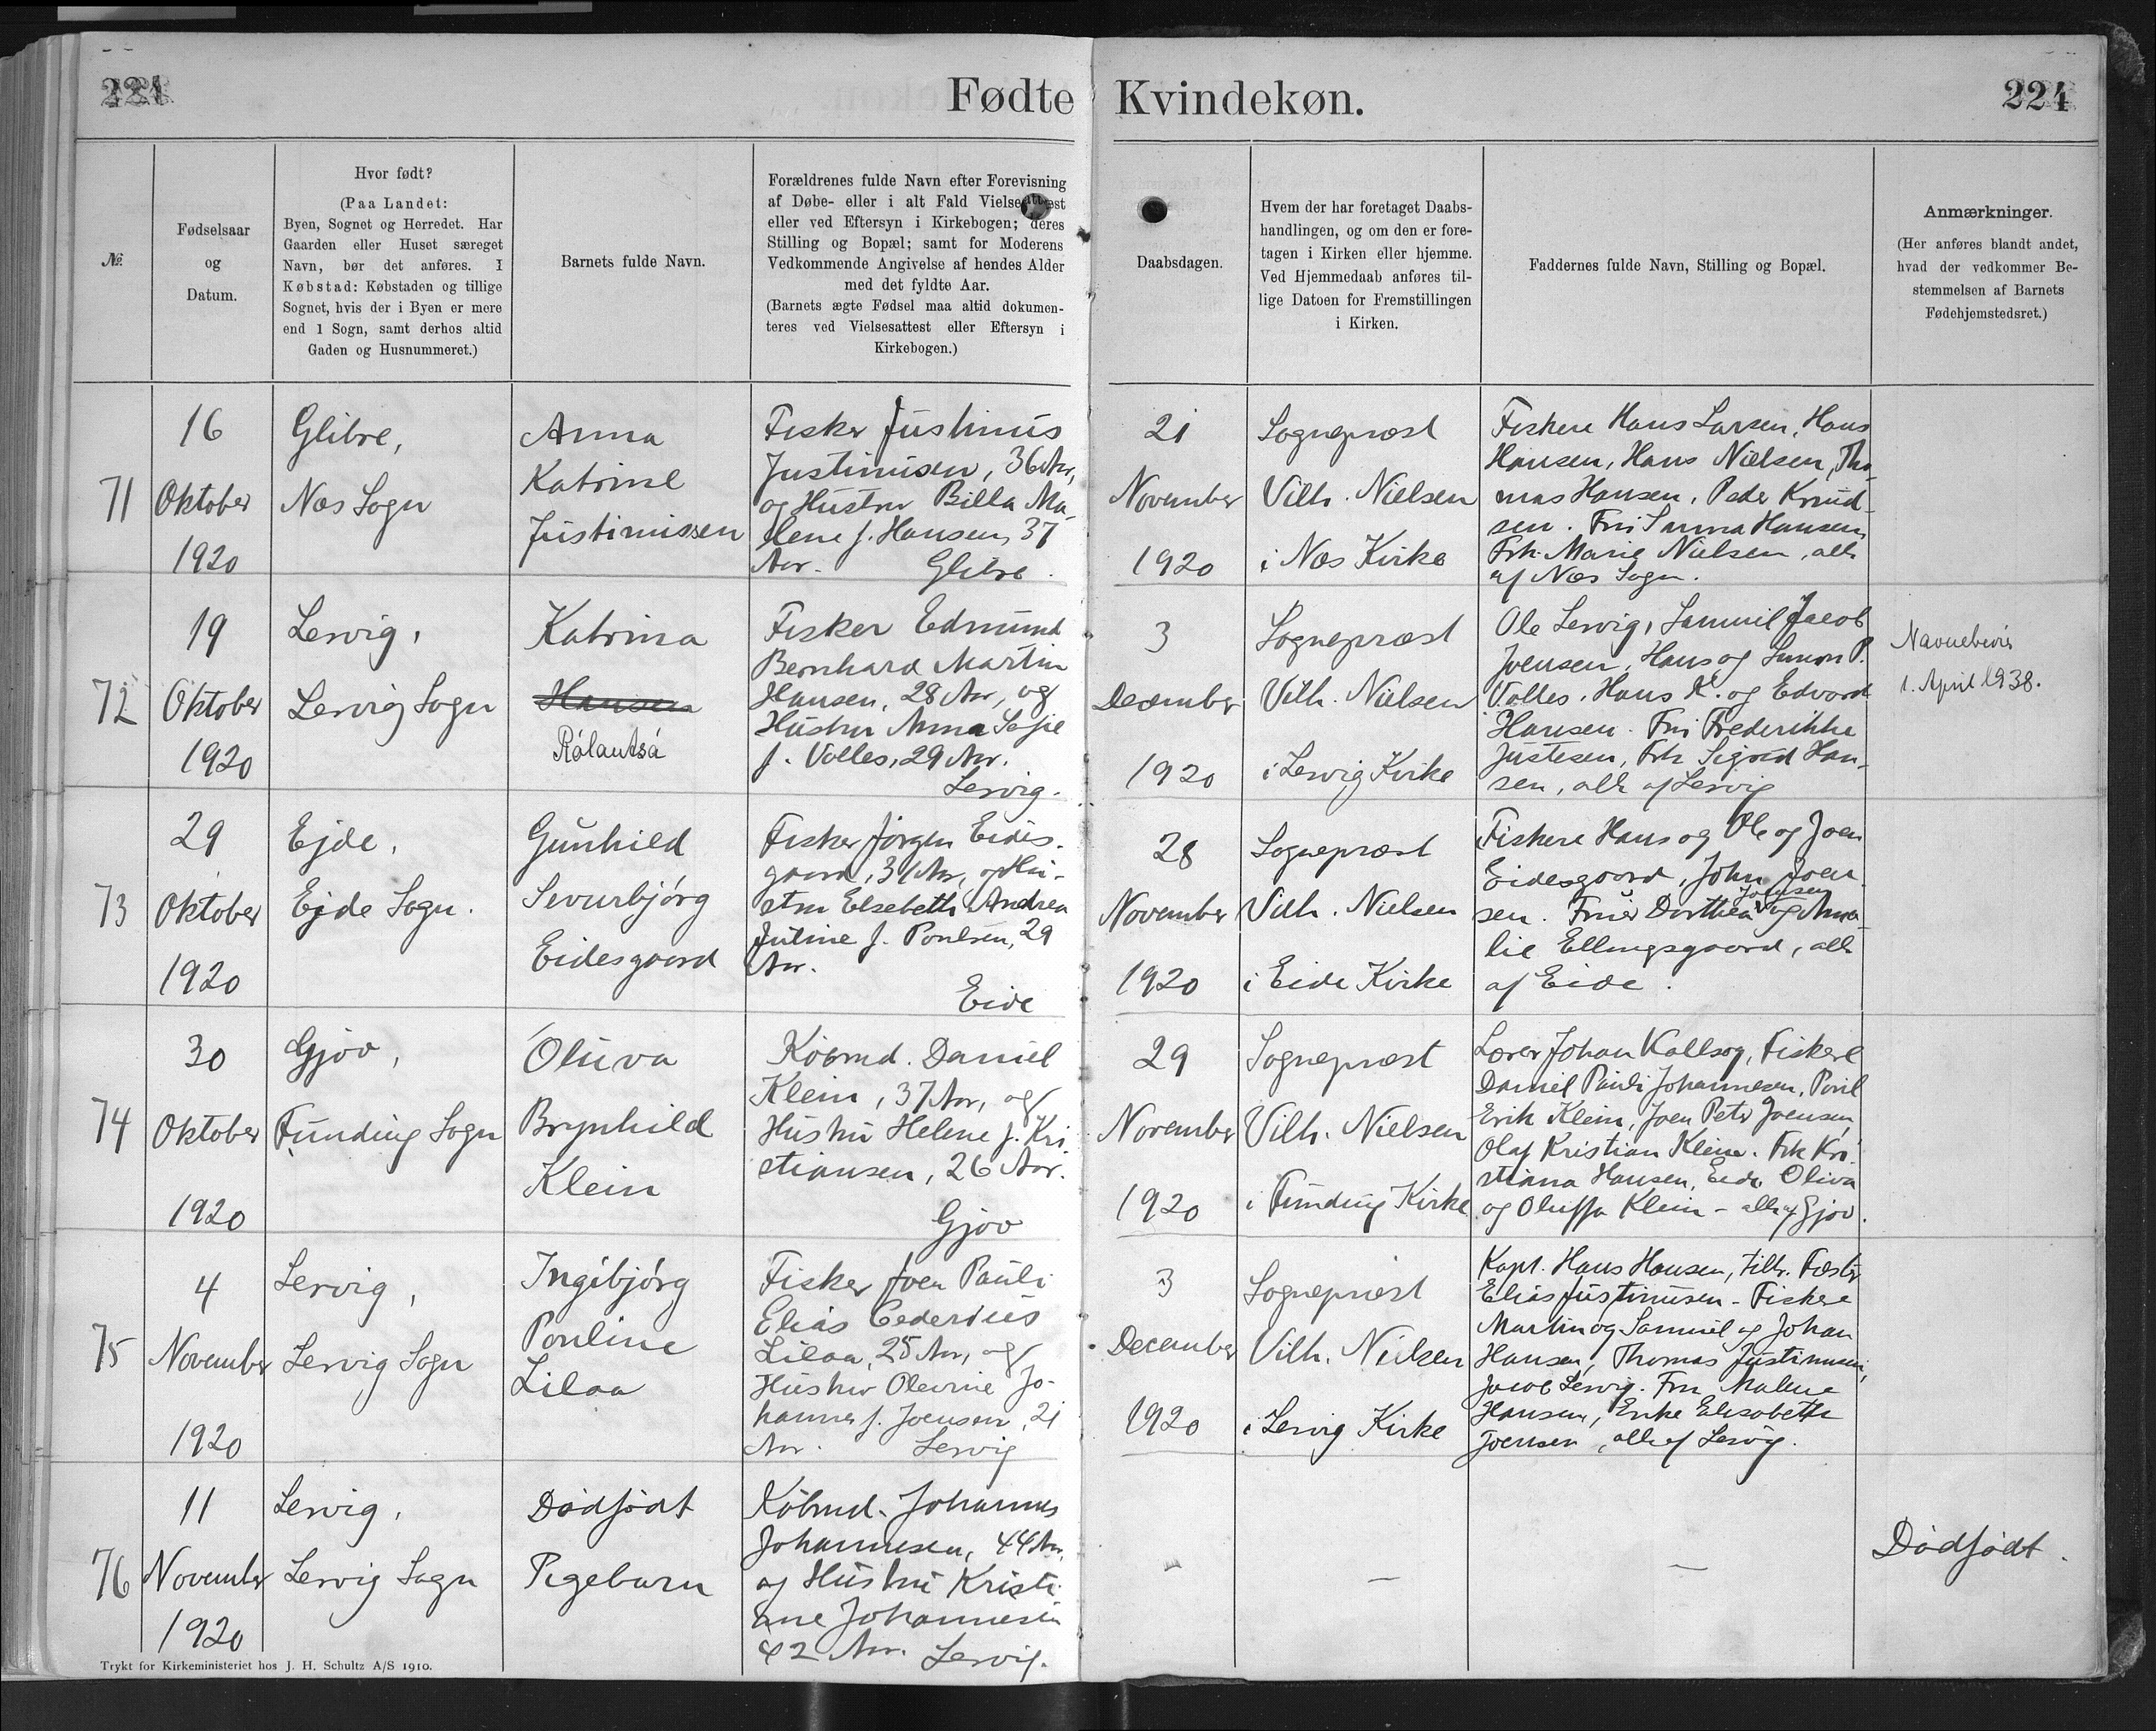 221
Fødte
Kvindekøn.
224
№.
Fødselsaar
og
Datum.
Hvor født?
(Paa Landet:
Byen, Sognet og Herredet. Har
Gaarden eller Huset særeget
Navn, bør det anføres. I
Købstad: Købstaden og tillige
Sognet, hvis der i Byen er mere
end 1 Sogn, samt derhos altid
Gaden og Husnummeret.)
Barnets fulde Navn.
Forældrenes fulde Navn efter Forevisning
af Døbe- eller i alt Fald Vielsesattest
eller ved Eftersyn i Kirkebogen; deres
Stilling og Bopæl; samt for Moderens
Vedkommende Angivelse af hendes Alder
med det fyldte Aar.
(Barnets ægte Fødsel maa altid dokumen-
teres ved Vielsesattest eller Eftersyn i
Kirkebogen.)
Daabsdagen.
Hvem der har foretaget Daabs-
handlingen, og om den er fore-
tagen i Kirken eller hjemme.
Ved Hjemmedaab anføres til-
lige Datoen for Fremstillingen
i Kirken.
Faddernes fulde Navn, Stilling og Bopæl.
Anmærkninger.
(Her anføres blandt andet,
hvad der vedkommer Be-
stemmelsen af Barnets
Fødehjemstedsret.)
71
16
Oktober
1920
Glibre,
Nes Sogn
Anna
Katrine
Justinussen
Fisker Justinus
Justinusen, 36 Aar,
og Hustru Billa Ma-
lene f. Hansen, 37
Aar.
Glibre.
21
November
1920
Sognepræst
Vilh. Nielsen
i Nes Kirke
Fiskere Hans Larsen, Hans
Hansen, Hans Nielsen, Tho-
mas Hansen, Peder Knud-
sen. Fru Sanna Hansen,
Frk. Marie Nielsen, alle
af Nes Sogn.
72
19
Oktober
1920
Lervig,
Lervig Sogn
Katrina
Hansen
Rólantsá
Fisker Edmund
Bernhard Martin
Hansen, 28 Aar, og
Hustru Anna Sofie
f. Volles, 29 Aar.
Lervig.
3
December
1920
Sognepræst
Vilh. Nielsen
i Lervig Kirke
Ole Lervig, Samuel Jacob
Joensen, Hans og Simon P.
Volles, Hans K. og Edvard
Hansen. Fru Frederikke
Justesen, Frk. Sigrid Han-
sen, alle af Lervig
Navnebevis
1. April 1938.
73
29
Oktober
1920
Ejde,
Ejde Sogn.
Gunhild
Sivurbjörg
Eidesgaard
Fisker Jörgen Eides-
gaard, 31 Aar, og Hu-
stru Elsebeth Andrea
Jutine f. Poulsen, 29
Aar.
Eide
28
November
1920
Sognepræst
Vilh. Nielsen
i Eide Kirke
Fiskere Hans og Ole og Joen
Eidesgaard, John Joen-
sen. Fruer Dorthea Joensen og Ama-
lie Ellingsgaard, alle
af Eide.
74
30
Oktober
1920
Gjov,
Funding Sogn
Óluva
Brynhild
Klein
Kóbmd. Daniel
Klein, 37 Aar, og
Hustru Helene f. Kri-
stiansen, 26 Aar.
Gjov
29
November
1920
Sognepræst
Vilh. Nielsen
i Funding Kirke
Lærer Johan Kallsoy, Fiskere
Daniel Pauli Johannesen, Poul
Erik Klein, Joen Petr Joensen,
Olaf Kristian Klein. Frk Kri-
stiana Hansen, Eide, Oliva
og Oluffa Klein - alle af Gjov.
75
4
November
1920
Lervig,
Lervig Sogn
Ingibjórg
Pouline
Lilaa
Fisker Joen Pauli
Elias Cederius
Lilaa, 25 Aar, og
Hustru Olevine Jo-
hanne f. Joensen, 21
Aar.
Lervig
3
December
1920
Sognepræst
Vilh. Nielsen
i Lervig Kirke
Kapt. Hans Hansen, tilfr. Fæster
Elias Justinusen - Fiskere
Martin og Samuel og Johan
Hansen, Thomas Justinusen,
Jacob Lervig. Fru Malene
Hansen, Enke Elisabeth
Joensen, alle af Lervig.
76
11
November
1920
Lervig,
Lervig Sogn
Dödfödt
Pigebarn
Kóbmd. Johannes
Johannesen, 44 Aar,
og Hustru Kristi-
ane Johannesen
42 Aar. Lervig.
-
-
-
Dödfódt.
Trykt for Kirkeministeriet hos J. H. Schultz A/S 1910.